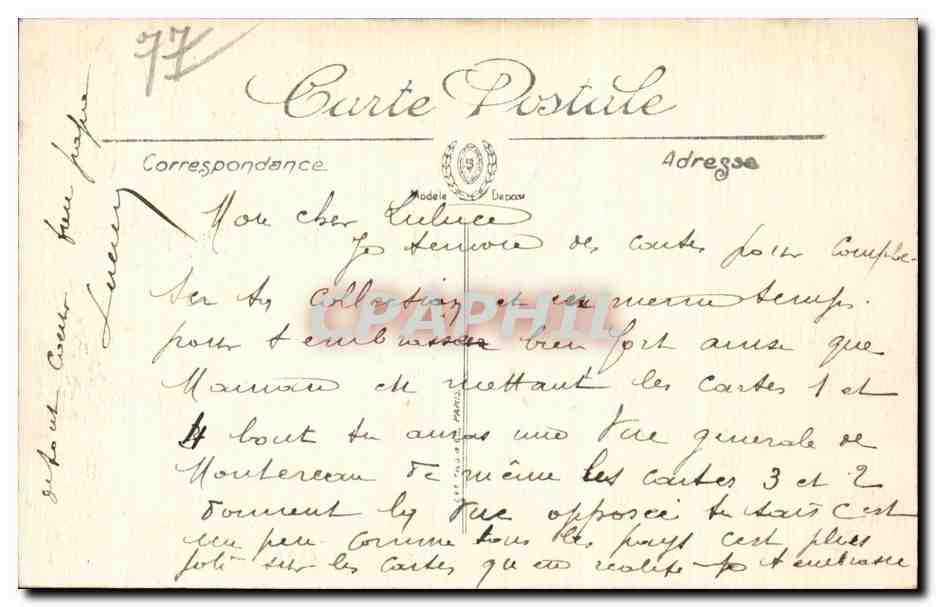 77
Carte Postale
Correspondance
Adresse
Modèle Déposé
Mon cher Lulu
Je t'envoie des cartes pour complé-
ter ta collection et en meme temps
pour t embrasser bien fort ainsi que
Maman en mettant les cartes 1 et
4 bout tu auras une vue generale de
Montereau de même les cartes 3 et 2
donnent la vue opposée tu sais c'est
un peu comme tous les pays c'est plus
joli sur les cartes qu en realite je t embrasse
de tout coeur ton papa
Lucien
PARIS
CPAPHIL